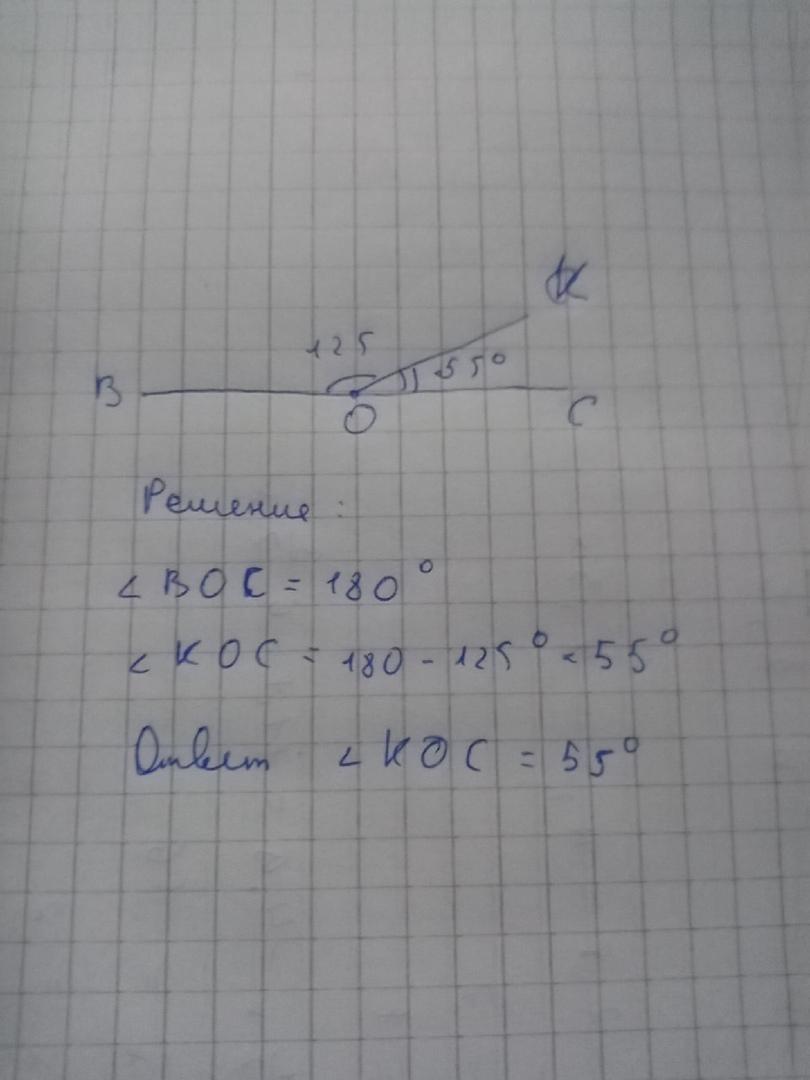 K
125
55°
B
O
C
Решение:
∠BOC = 180°
∠KOC = 180 - 125° = 55°
Ответ ∠KOC = 55°